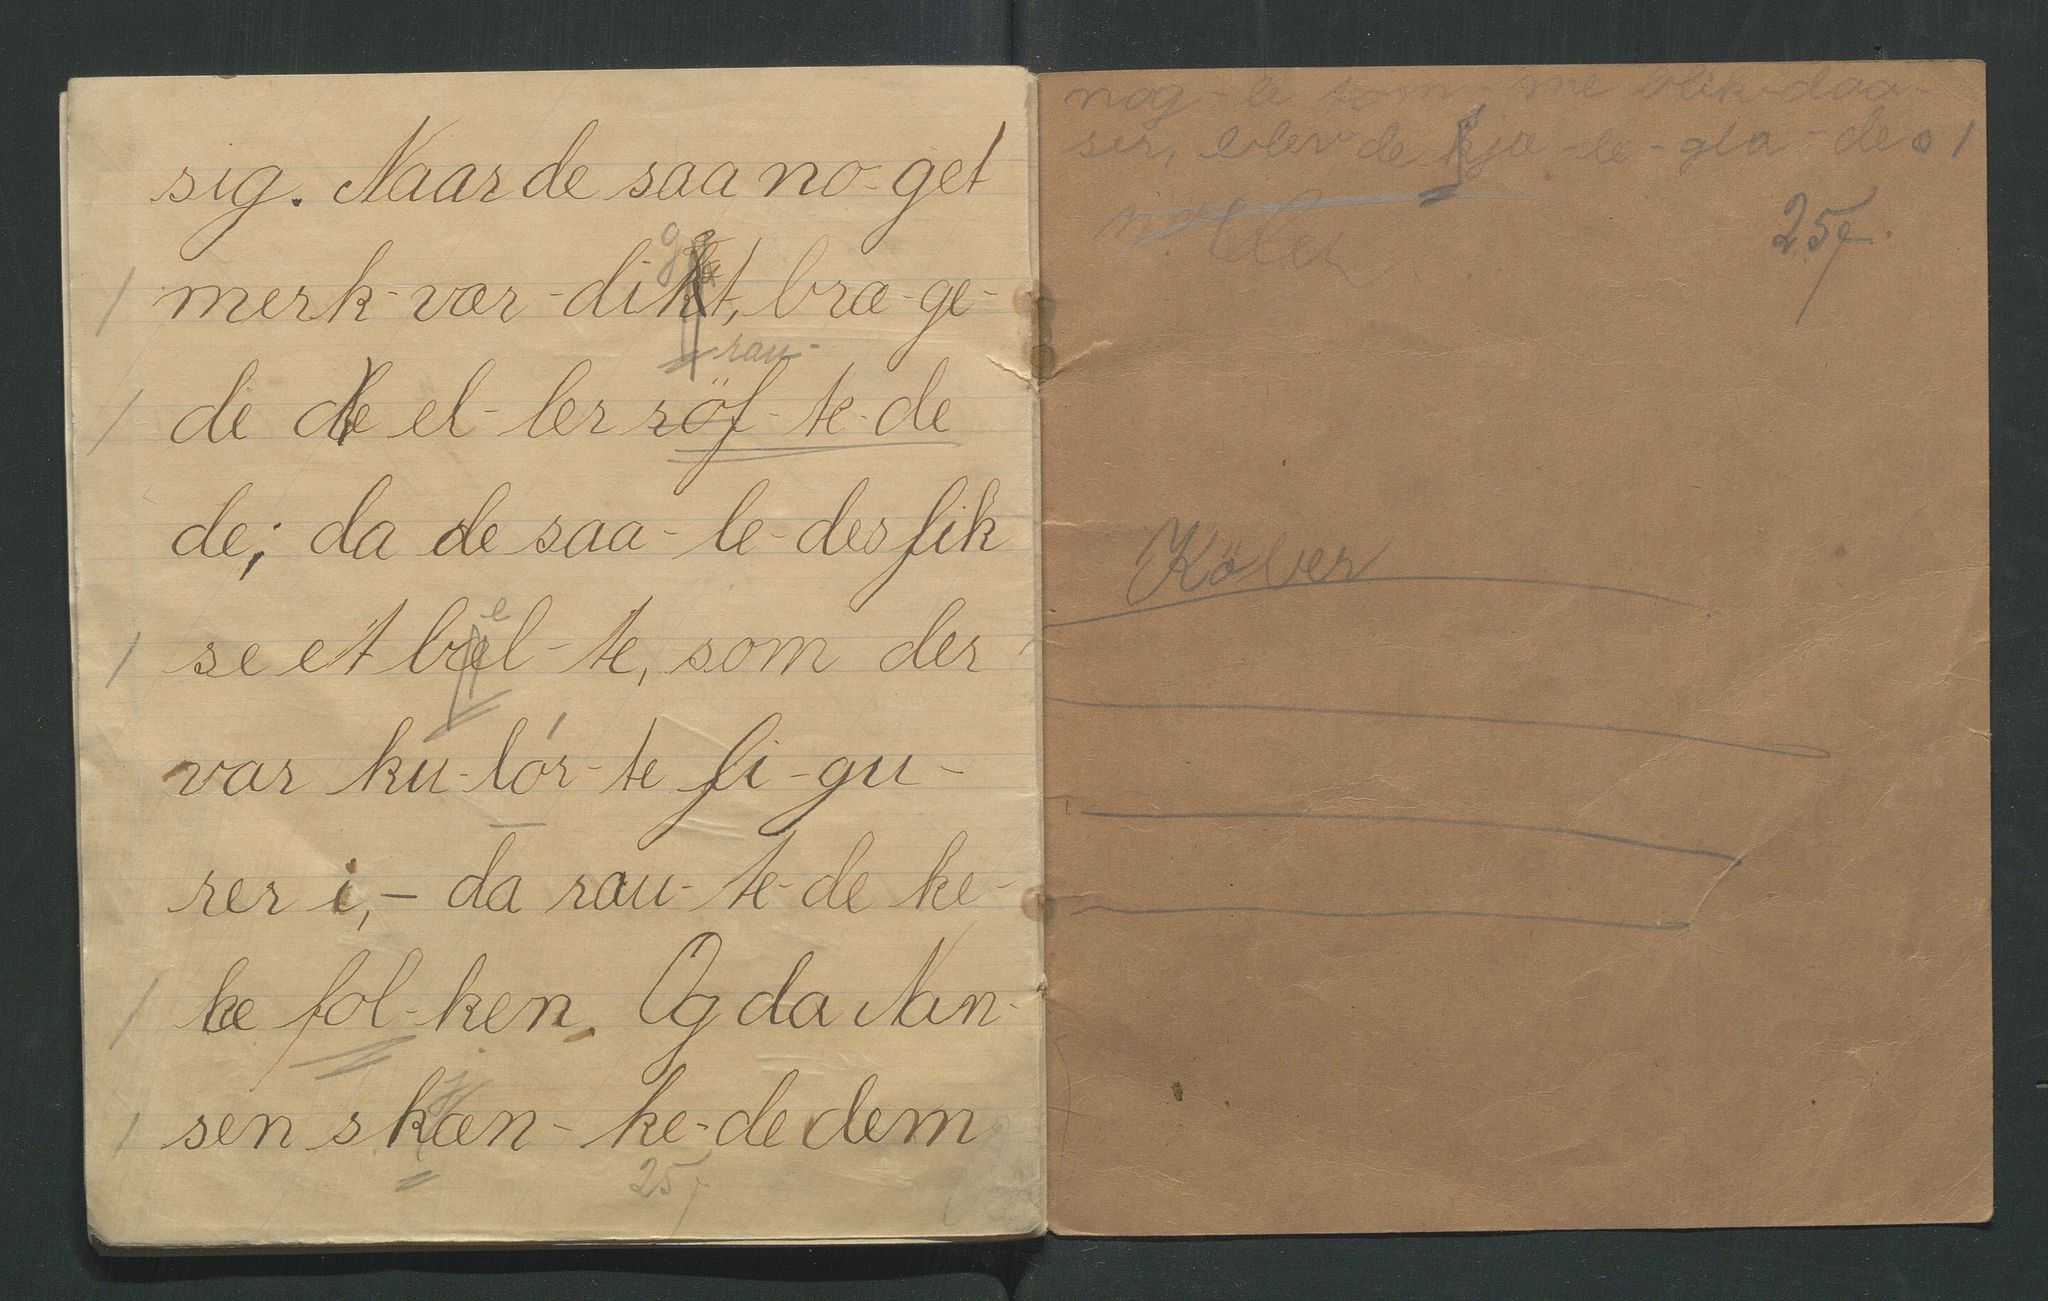 sig. Naar de saa no-get
merk-vær-dikt, bræ-ge-
rau-
de de el-ler röf-te-de
de; da de saa-le-des fik
se et bæl-te, som der
var ku-lór-te fi-gu-
rer i, – da rau-te-de ke-
ke fol-ken. Og da Nan-
sen skæn-ke-de dem
25
nog-le tom-me blik-daa-
ser, blev de kjæ-le-gla-de.
25
Köber